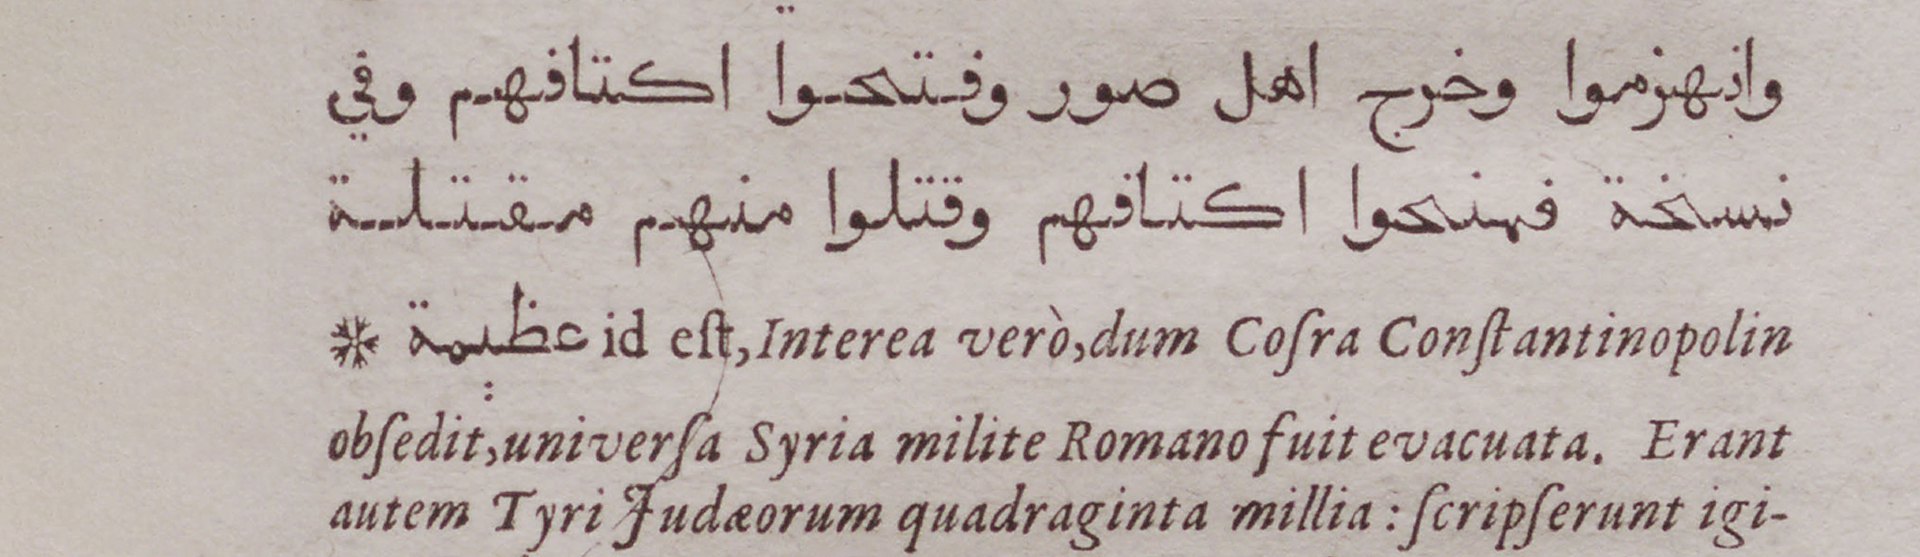 وانهزموا وخرج اهل صور وفتحوا اكتافهم وفي
نسخة فمنحوا اكتافهم وقتلوا منهم مقتلة
عظيمة ⁕ id eſt, Interea verò, dum Coſra Conſtantinopolin
obſedit, univerſa Syria milite Romano fuit evacuata. Erant
autem Tyri Judæorum quadraginta millia: ſcripſerunt igi-